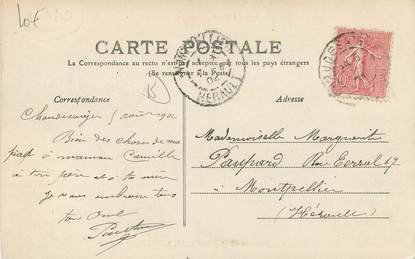 Lot
CARTE POSTALE
La Correspondance au recto n'est pas acceptée par tous les pays étrangers
(Se renseigner à la Poste)
Correspondance
Adresse
HERAULT
Bien des choses de ma
part à maman Camille
à ton père et à ta mère
Je vous embrasse tous
ton Oncle
Mademoiselle Marguerite
Paupard Rue
Montpellier
(Hérault)